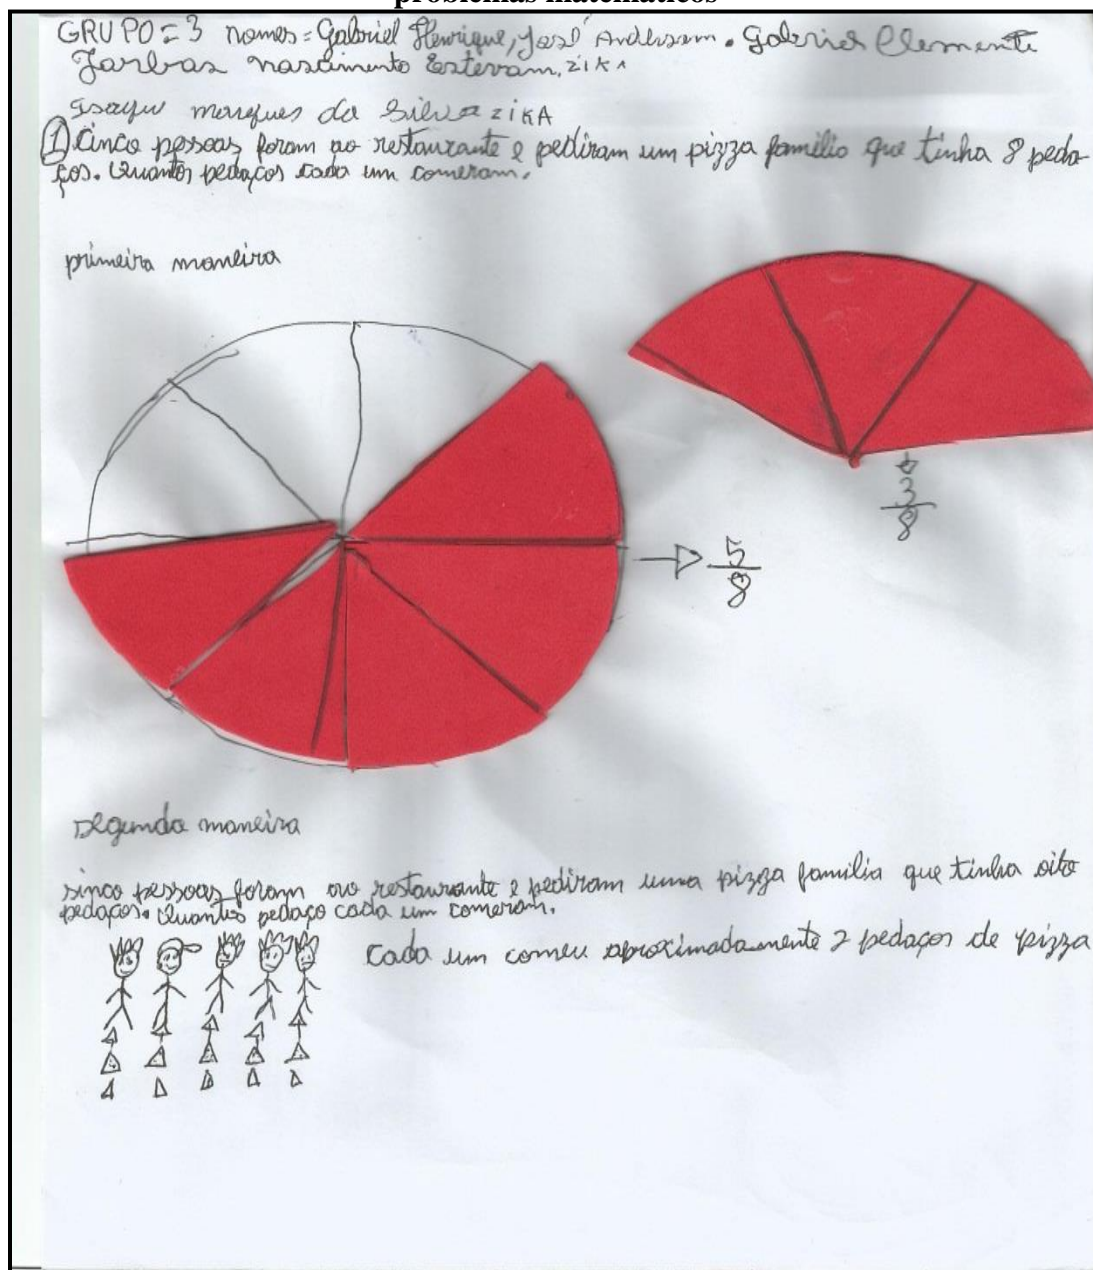 problemas matemáticos
GRUPO = 3 nomes = Gabriel Henrique, José Anderson. Gabriel Clemente
Jarbas nascimento Estevam, ZIKA
Isaque marques da Silva ZIKA
① Cinco pessoas foram ao restaurante e pediram um pizza familio que tinha 8 peda-
ços. Quantos pedaços cada um comeram.
primeira maneira
3
8
5
8
segunda maneira
sinco pessoas foram ao restaurante e pediram uma pizza familia que tinha oito
pedaços. Quantos pedaço cada um comeram.
Cada um comeu aproximadamente 2 pedaços de pizza